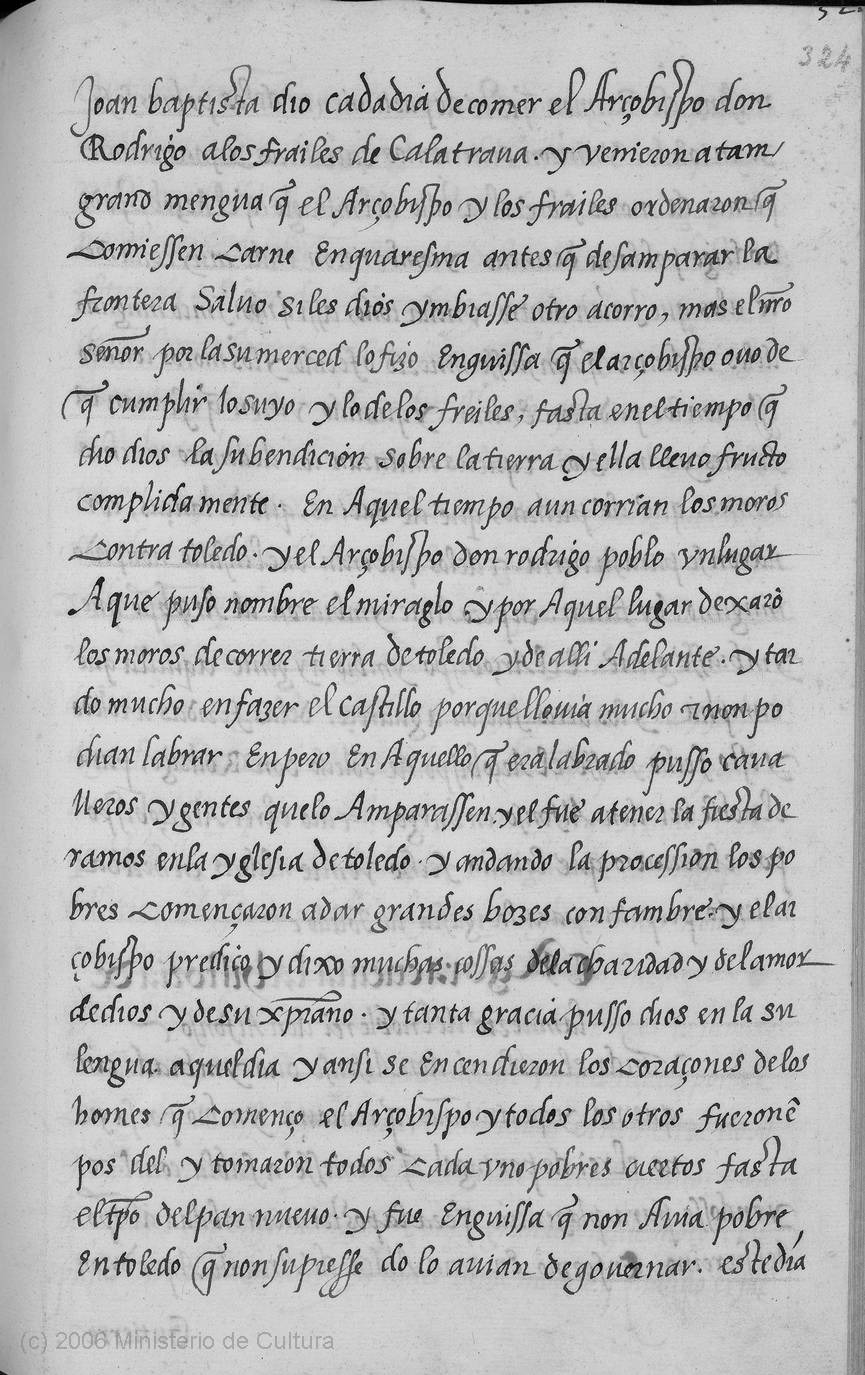 52.
324
Joan baptista dio cada dia de comer el Arçobispo don
Rodrigo a los frailes de Calatraua. y venieron a tam
grand mengua q̃ el Arçobispo y los frailes ordenaron q̃
Comiessen Carne En quaresma antes q̃ desamparar la
frontera Saluo si les dios ymbiasse otro acorro, mas el nr̃o
señor por la su merced lo fizo Enguissa q̃ el arçobispo ouo de
q̃ cumplir lo suyo y lo de los freiles, fasta en el tiempo q̃
dio dios la su bendición sobre la tierra y ella lleuo fructo
complida mente. En Aquel tiempo aun corrian los moros
Contra toledo. y el Arçobispo don rodrigo poblo vn lugar
A que puso nombre el miraglo y por Aquel lugar dexarõ
los moros de correr tierra de toledo y de alli Adelante. y tar
do mucho en fazer el Castillo porque llouia mucho z non po
dian labrar En pero En Aquello q̃ era labrado pusso caua
lleros y gentes que lo Amparassen y el fue a tener la fiesta de
ramos en la yglesia de toledo. y andando la procession los po
bres Començaron a dar grandes bozes con fambre. y el ar
çobispo predicó y dixo muchas cossas de la charidad y del amor
de dios y de su xpr̃iano. y tanta gracia pusso dios en la su
lengua aquel dia y ansi se Encendieron los Coraçones de los
homes q̃ Començo el Arçobispo y todos los otros fueron ẽ
pos del y tomaron todos Cada vno pobres ciertos fasta
el tp̃o del pan nueuo. y fue Enguissa q̃ non Auia pobre
En toledo q̃ non supiesse do lo auian de gouernar. este día
(c) 2006 Ministerio de Cultura